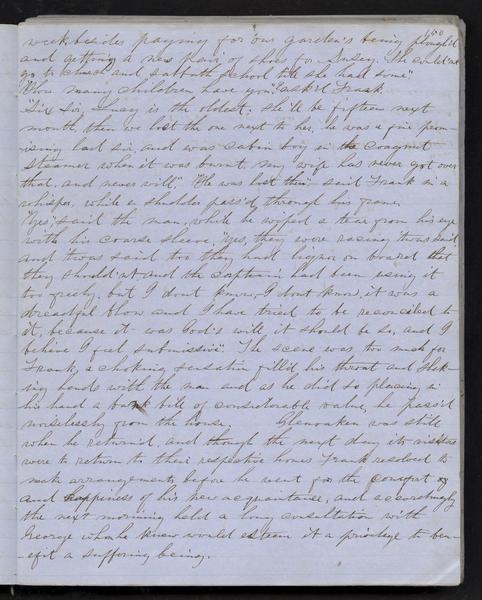 150
week besides paying for our garden's being plough'd
and getting a new pair of shoes for Lucy. She could'nt
go to church and sabbath school till she had some"
"How many children have you?" ask'd Frank.
"Six Sir, Lucy is the oldest; she'll be fifteen next
month, then we lost the one next to her, he was a fine prom-
ising lad sir, and was cabin boy in the
steamer when it was burnt. my wife has never got over
that, and never will." "He was lost then," said Frank in a
whisper, while a shudder pass'd through his frame.
"Yes," said the man, while he wiped a tear from his eye
with his coarse sleeve, "yes, they were racing 'twas said
and twas said too they had liquor on board that
they should'nt and the captain had been using it
too freely, but I dont know, I dont know, it was a
dreadful blow and I have tried to be reconciled to
it, because it was God's will it should be so, and I
believe I feel submissive". The scene was too much for
Frank, a choking sensation fill'd his throat and shak-
ing hands with the man and as he did so placing in
his hand a bank bill of considerable value, he pass'd
noiselessly from the house Glenoaken was still
when he return'd, and though the next day its visiters
were to return to their respective homes Frank resolved to
make arrangements before he went for the comfort
and happiness of his new acquaintance, and accordingly
the next morning held a long consultation with
George who he knew would esteem it a privilege to ben-
efit a suffering being.